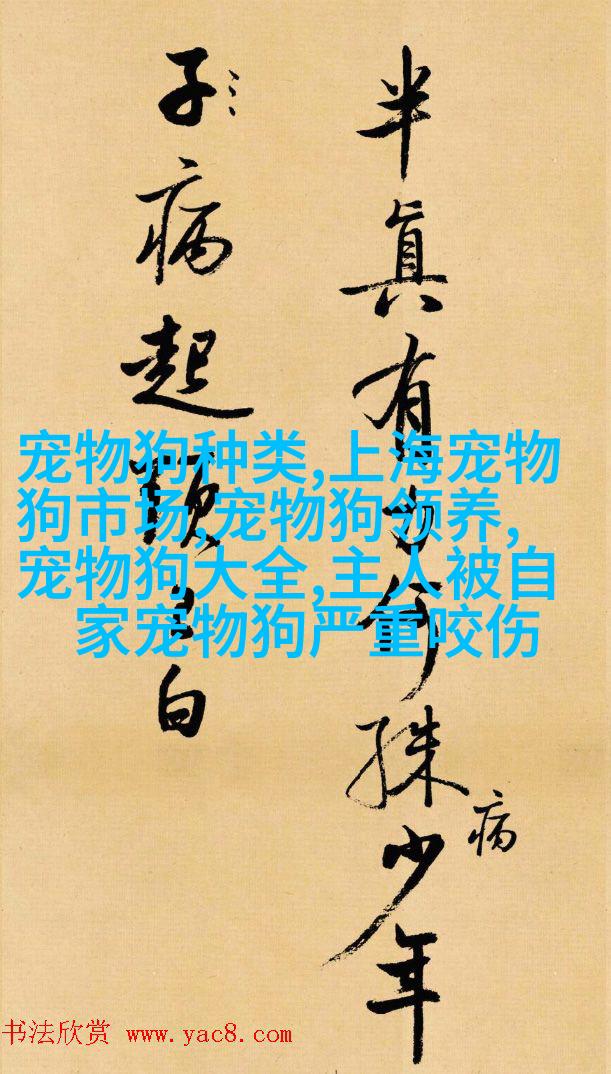 半真有
殊少年
病
子
病起須
白
宠物狗种类,上海宠物
狗市场,宠物狗领养,
宠物狗大全,主人被自
家宠物狗严重咬伤
书法欣赏 www.yac8.com